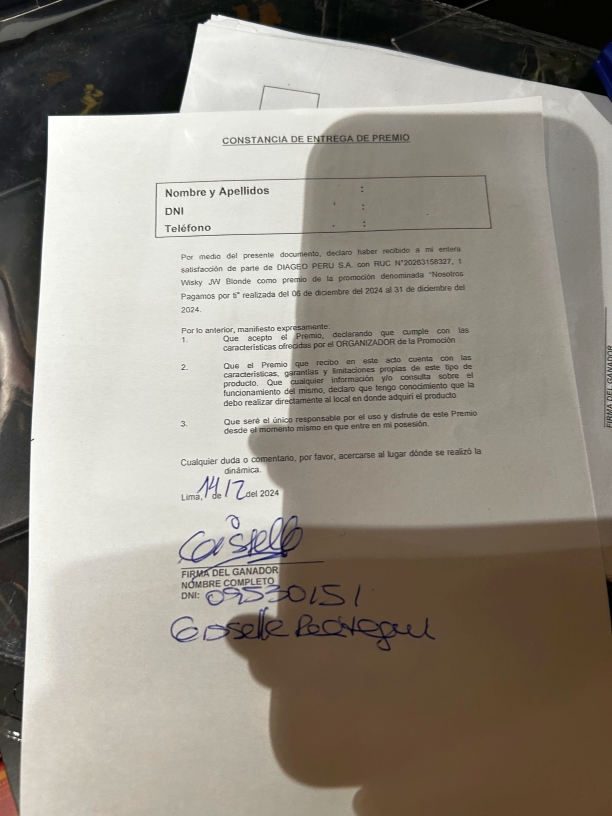 CONSTANCIA DE ENTREGA DE PREMIO
Nombre y Apellidos :
DNI :
Teléfono :
Por medio del presente documento, declaro haber recibido a mi entera
satisfacción de parte de DIAGEO PERU S.A. con RUC N°20263158327, 1
Wisky JW Blonde como premio de la promoción denominada "Nosotros
Pagamos por ti" realizada del 06 de diciembre del 2024 al 31 de diciembre del
2024.
Por lo anterior, manifiesto expresamente:
1. Que acepto el Premio, declarando que cumple con las
características ofrecidas por el ORGANIZADOR de la Promoción
2. Que el Premio que recibo en este acto cuenta con las
características, garantías y limitaciones propias de este tipo de
producto. Que cualquier información y/o consulta sobre el
funcionamiento del mismo, declaro que tengo conocimiento que la
debo realizar directamente al local en donde adquirí el producto.
3. Que seré el único responsable por el uso y disfrute de este Premio
desde el momento mismo en que entre en mi posesión.
Cualquier duda o comentario, por favor, acercarse al lugar dónde se realizó la
dinámica.
Lima, 14 de 12 del 2024
FIRMA DEL GANADOR
NOMBRE COMPLETO
DNI: 09530151
Gisselle
FIRMA DEL GANADOR